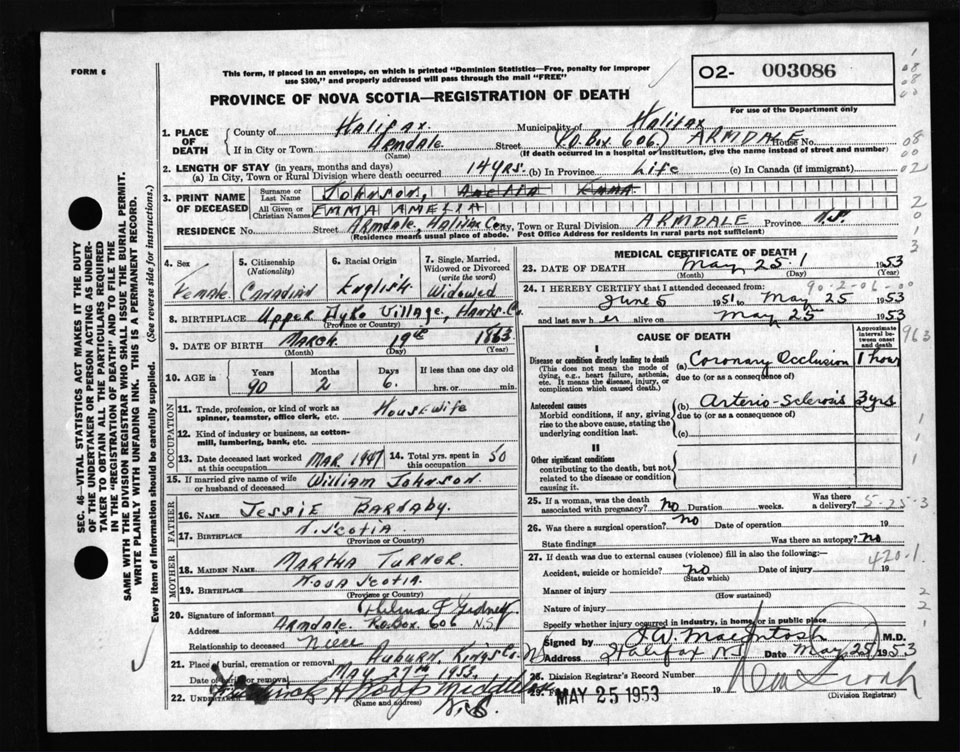 FORM 6
This form, if placed in an envelope, on which is printed "Dominion Statistics—Free, penalty for improper
use $300," and properly addressed will pass through the mail "FREE"
PROVINCE OF NOVA SCOTIA—REGISTRATION OF DEATH
02- 003086
For use of the Department only
1. PLACE OF DEATH
County of Halifax. Municipality of Halifax
If in City or Town Armdale. Street P.O. Box 606 ARMDALE House No.
(Name) (If death occurred in a hospital or institution, give the name instead of street and number)
2. LENGTH OF STAY (in years, months and days)
(a) In City, Town or Rural Division where death occurred 14 yrs. (b) In Province Life (c) In Canada (if immigrant)
3. PRINT NAME OF DECEASED
Surname or Last Name Johnson, Amelia Emma.
All Given or Christian Names EMMA AMELIA
RESIDENCE No. Street Armdale, Halifax Co. City, Town or Rural Division ARMDALE Province N.S.
(Residence means usual place of abode. Post Office Address for residents in rural parts not sufficient)
4. Sex Female.
5. Citizenship (Nationality) Canadian
6. Racial Origin English.
7. Single, Married, Widowed or Divorced (write the word) Widowed
8. BIRTHPLACE Upper Village, Hants. Co.
(Province or Country)
9. DATE OF BIRTH March 19th 1863
(Month) (Day) (Year)
10. AGE in Years Months Days If less than one day
90 2 6. hrs. or min.
OCCUPATION
11. Trade, profession, or kind of work as spinner, teamster, office clerk, etc. Housewife
12. Kind of industry or business, as cotton-mill, lumbering, bank, etc.
13. Date deceased last worked at this occupation Mar. 1947 14. Total yrs. spent in this occupation 50
15. If married give name of wife or husband of deceased William Johnson.
FATHER
16. Name Jessie Barnaby.
17. Birthplace N. Scotia.
(Province or Country)
MOTHER
18. Maiden Name Martha Turner.
19. Birthplace Nova Scotia.
(Province or Country)
20. Signature of informant
Address Armdale. P.O. Box. 606 N.S.
Relationship to deceased Niece
21. Place of burial, cremation or removal Auburn, Kings Co. N
Date of burial or removal May 27th 1953.
22. Undertaker
(Name and address)
N.S.
MEDICAL CERTIFICATE OF DEATH
23. DATE OF DEATH May 25 1953
(Month) (Day) (Year)
24. I HEREBY CERTIFY that I attended deceased from: 90-2-06-00
June 5 1951 to May 25 1953
and last saw her alive on May 25th 1953
CAUSE OF DEATH
Approximate interval between onset and death
I
Disease or condition directly leading to death (This does not mean the mode of dying, e.g., heart failure, asthenia, etc. It means the disease, injury, or complication which caused death.)
(a) Coronary Occlusion 1 hour
due to (or as a consequence of)
Antecedent causes
Morbid conditions, if any, giving rise to the above cause, stating the underlying condition last.
(b) Arterio-Sclerosis 3 yrs
due to (or as a consequence of)
(c)
II
Other significant conditions
contributing to the death, but not related to the disease or condition causing it.
25. If a woman, was the death associated with pregnancy? No Duration weeks. Was there a delivery? 5-25-3
26. Was there a surgical operation? No Date of operation 19
State findings Was there an autopsy? No
27. If death was due to external causes (violence) fill in also the following:— 420-1
Accident, suicide or homicide? No Date of injury 19
(State which)
Manner of injury
(How sustained)
Nature of injury
Specify whether injury occurred in industry, in home, or in public place
Signed by J.W. MacIntosh M.D.
Address Halifax NS Date May 25 1953
28. Division Registrar's Record Number
29. MAY 25 1953 19
(Division Registrar)
SEC. 46—VITAL STATISTICS ACT MAKES IT THE DUTY
OF THE UNDERTAKER OR PERSON ACTING AS UNDER-
TAKER TO OBTAIN ALL THE PARTICULARS REQUIRED
IN THE "REGISTRATION OF DEATH" AND TO FILE THE
SAME WITH THE DIVISION REGISTRAR WHO SHALL ISSUE THE BURIAL PERMIT.
WRITE PLAINLY WITH UNFADING INK. THIS IS A PERMANENT RECORD.
Every item of information should be carefully supplied. (See reverse side for instructions.)